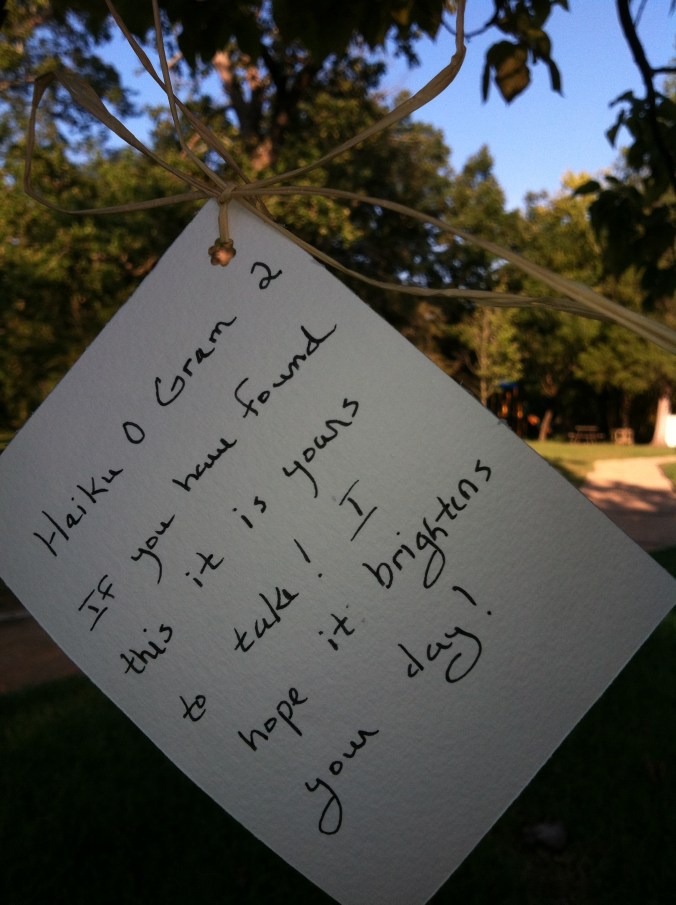 Haiku O Gram 2
If you have found
this it is yours
to take! I
hope it brightens
your day!